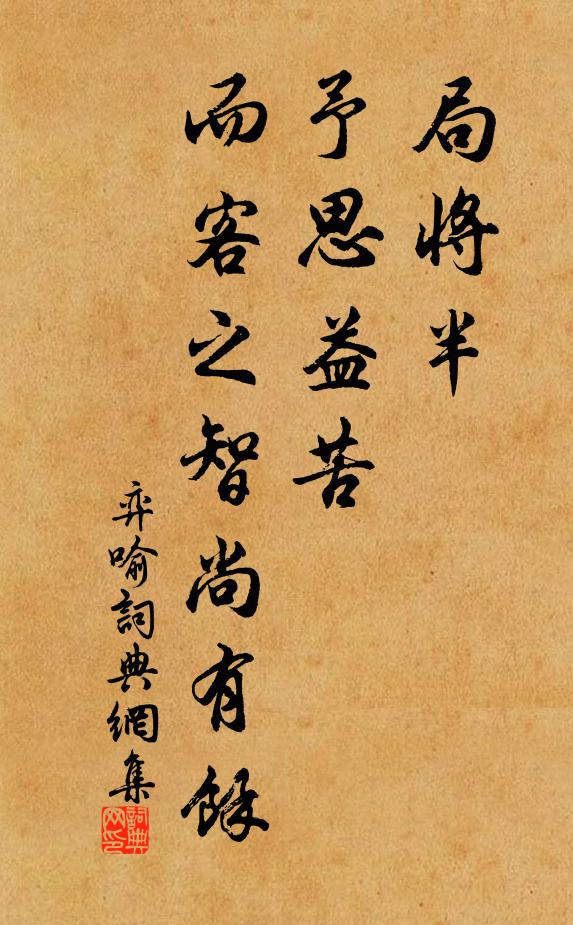 局將半
予思益苦
而客之智尚有餘
弈喻詞典網集
詞典網印